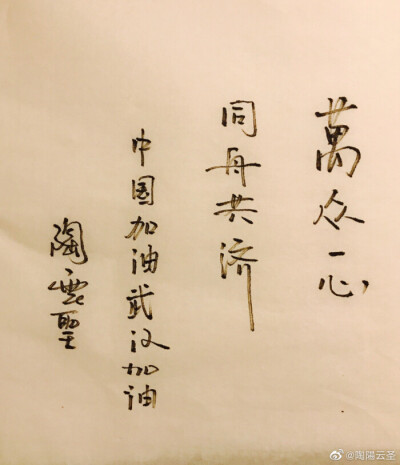 萬众一心
同舟共济
中国加油武汉加油
陶雲聖
@陶陽云圣